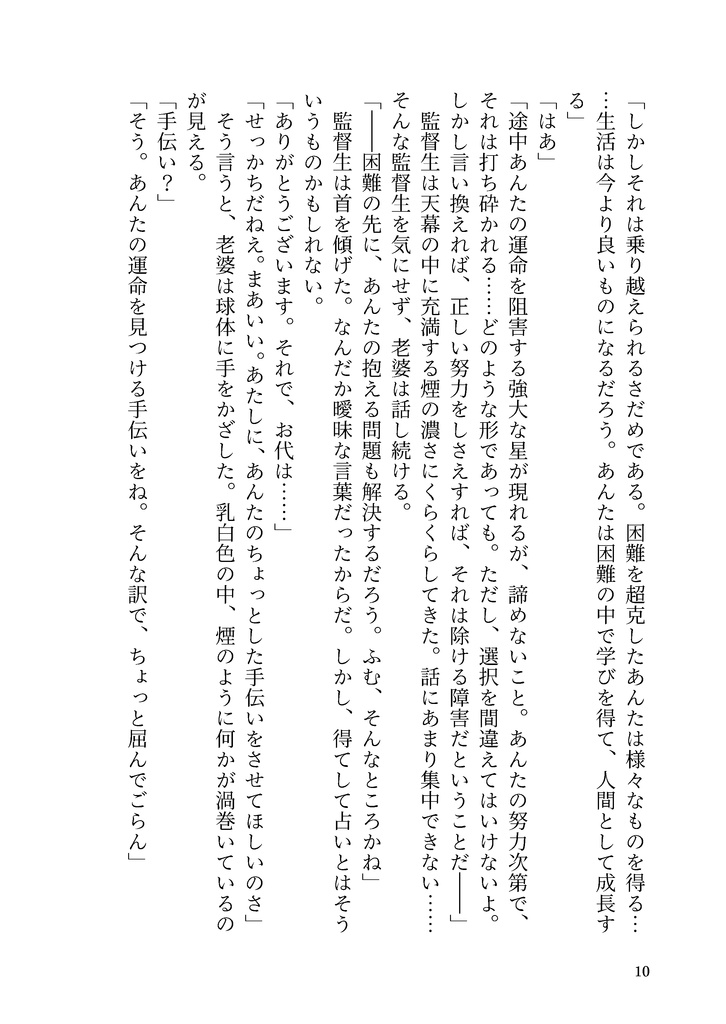 「しかしそれは乗り越えられるさだめである。困難を超克したあんたは様々なものを得る…
…生活は今より良いものになるだろう。あんたは困難の中で学びを得て、人間として成長す
る」
「はあ」
「途中あんたの運命を阻害する強大な星が現れるが、諦めないこと。あんたの努力次第で、
それは打ち砕かれる……どのような形であっても。ただし、選択を間違えてはいけないよ。
しかし言い換えれば、正しい努力をしさえすれば、それは除ける障害だということだ――」
監督生は天幕の中に充満する煙の濃さにくらくらしてきた。話にあまり集中できない……
そんな監督生を気にせず、老婆は話し続ける。
「――困難の先に、あんたの抱える問題も解決するだろう。ふむ、そんなところかね」
監督生は首を傾げた。なんだか曖昧な言葉だったからだ。しかし、得てして占いとはそう
いうものかもしれない。
「ありがとうございます。それで、お代は……」
「せっかちだねえ。まあいい。あたしに、あんたのちょっとした手伝いをさせてほしいのさ」
そう言うと、老婆は球体に手をかざした。乳白色の中、煙のように何かが渦巻いているの
が見える。
「手伝い？」
「そう。あんたの運命を見つける手伝いをね。そんな訳で、ちょっと屈んでごらん」
10